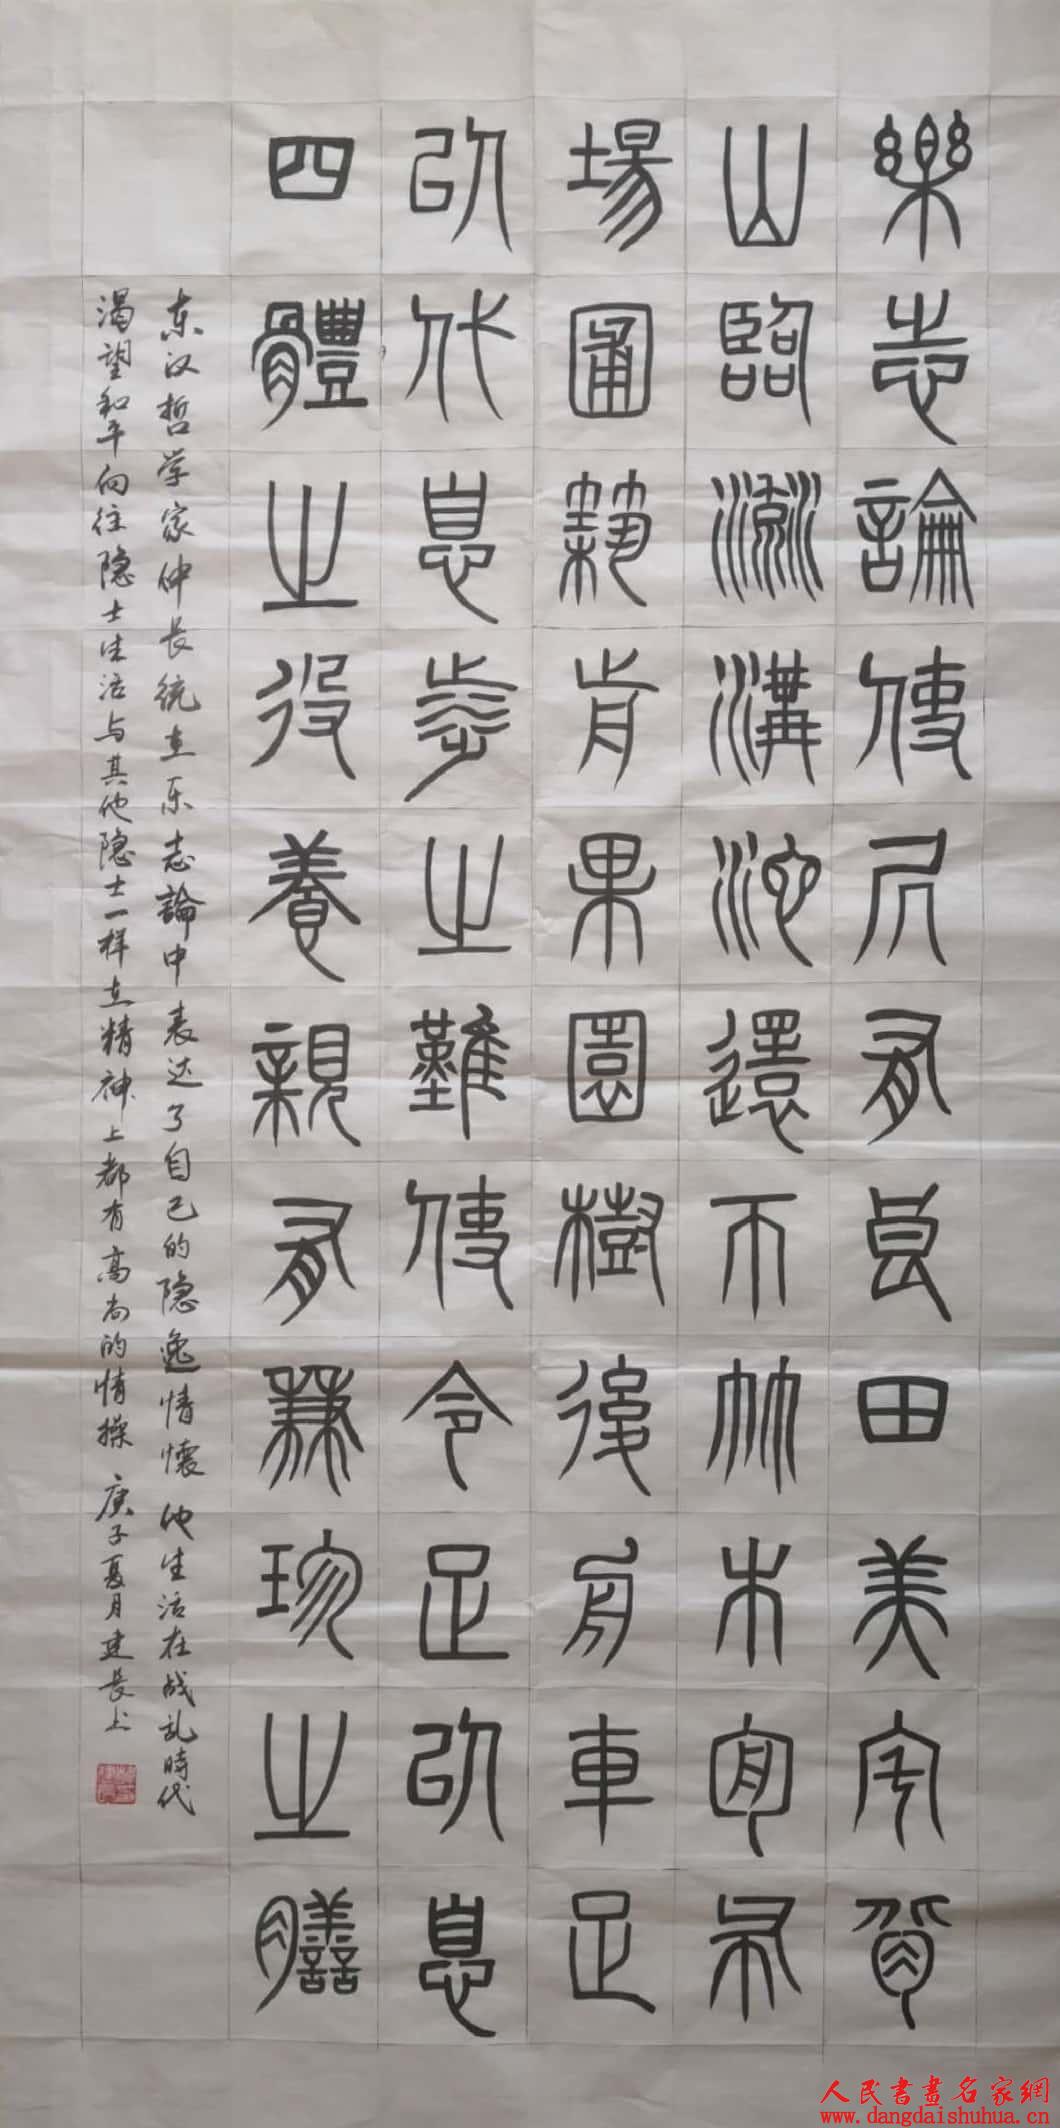 樂志論使居有良田美宅背
山臨流溝池還帀竹木周布
場圃築前果園樹後舟車足
以代步涉之難使令足以息
四體之役養親有兼珍之膳
东汉哲学家仲长统在乐志論中表达了自己的隐逸情懷他生活在战乱時代
渴望和平向往隐士生活与其他隐士一样在精神上都有高尚的情操 庚子夏月建長书
人民書畫名家網
www.dangdaishuhua.cn